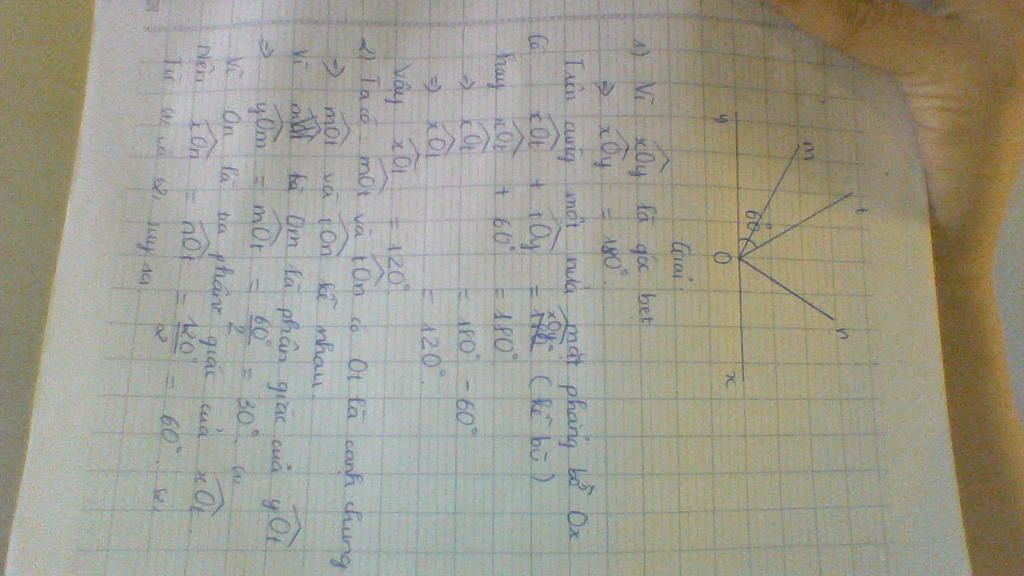 y m t n x
60°
O
Giải:
1) Vì xOy là góc bẹt
=> xOy = 180°.
Trên cùng một nửa mặt phẳng bờ Ox
Có xOt + tOy = xOy (kề bù)
hay xOt + 60° = 180°
=> xOt = 180° - 60°
=> xOt = 120°.
Vậy xOt = 120°
2) Ta có mOt và tOn có Ot là cạnh chung
=> mOt và tOn kề nhau.
Vì tia Om là phân giác của yOt
=> yOm = mOt = 60°/2 = 30°. (1)
Vì On là tia phân giác của xOt.
Nên xOn = nOt = 120°/2 = 60°. (2)
Từ (1) và (2) suy ra.